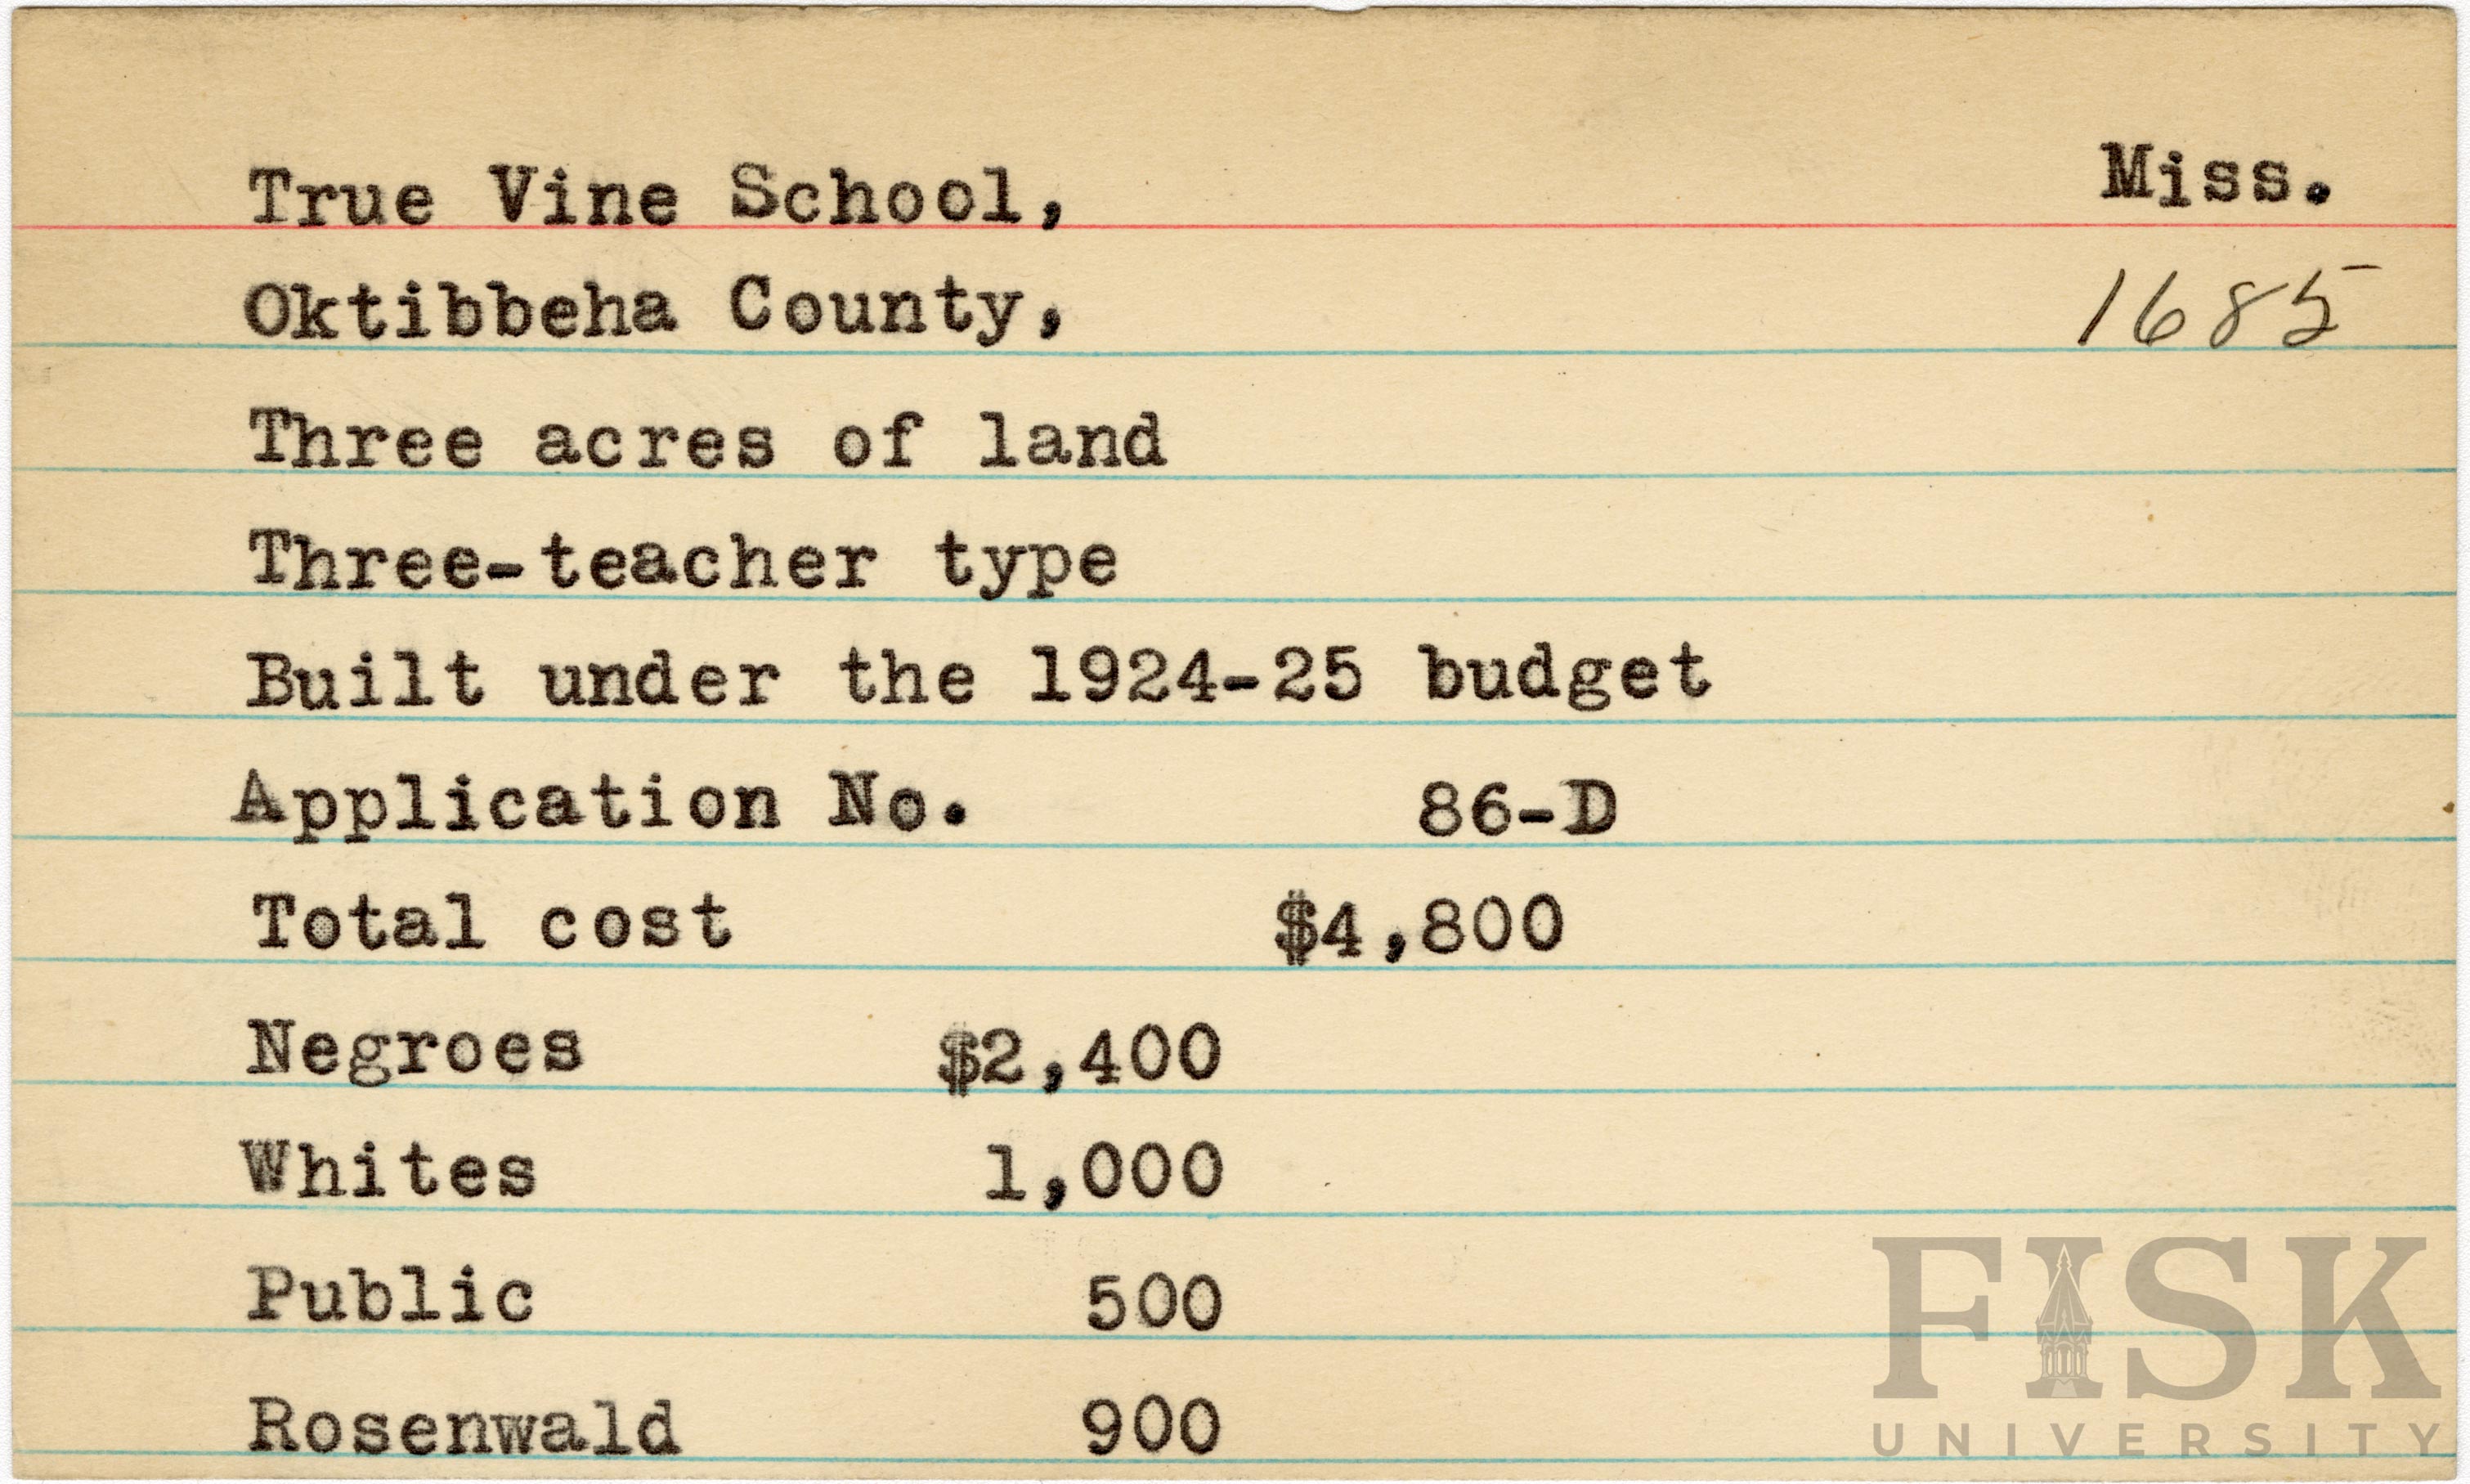 True Vine School, Miss.
Oktibbeha County, 1685
Three acres of land
Three-teacher type
Built under the 1924-25 budget
Application No. 86-D
Total cost $4,800
Negroes $2,400
Whites 1,000
Public 500
Rosenwald 900
FISK
UNIVERSITY